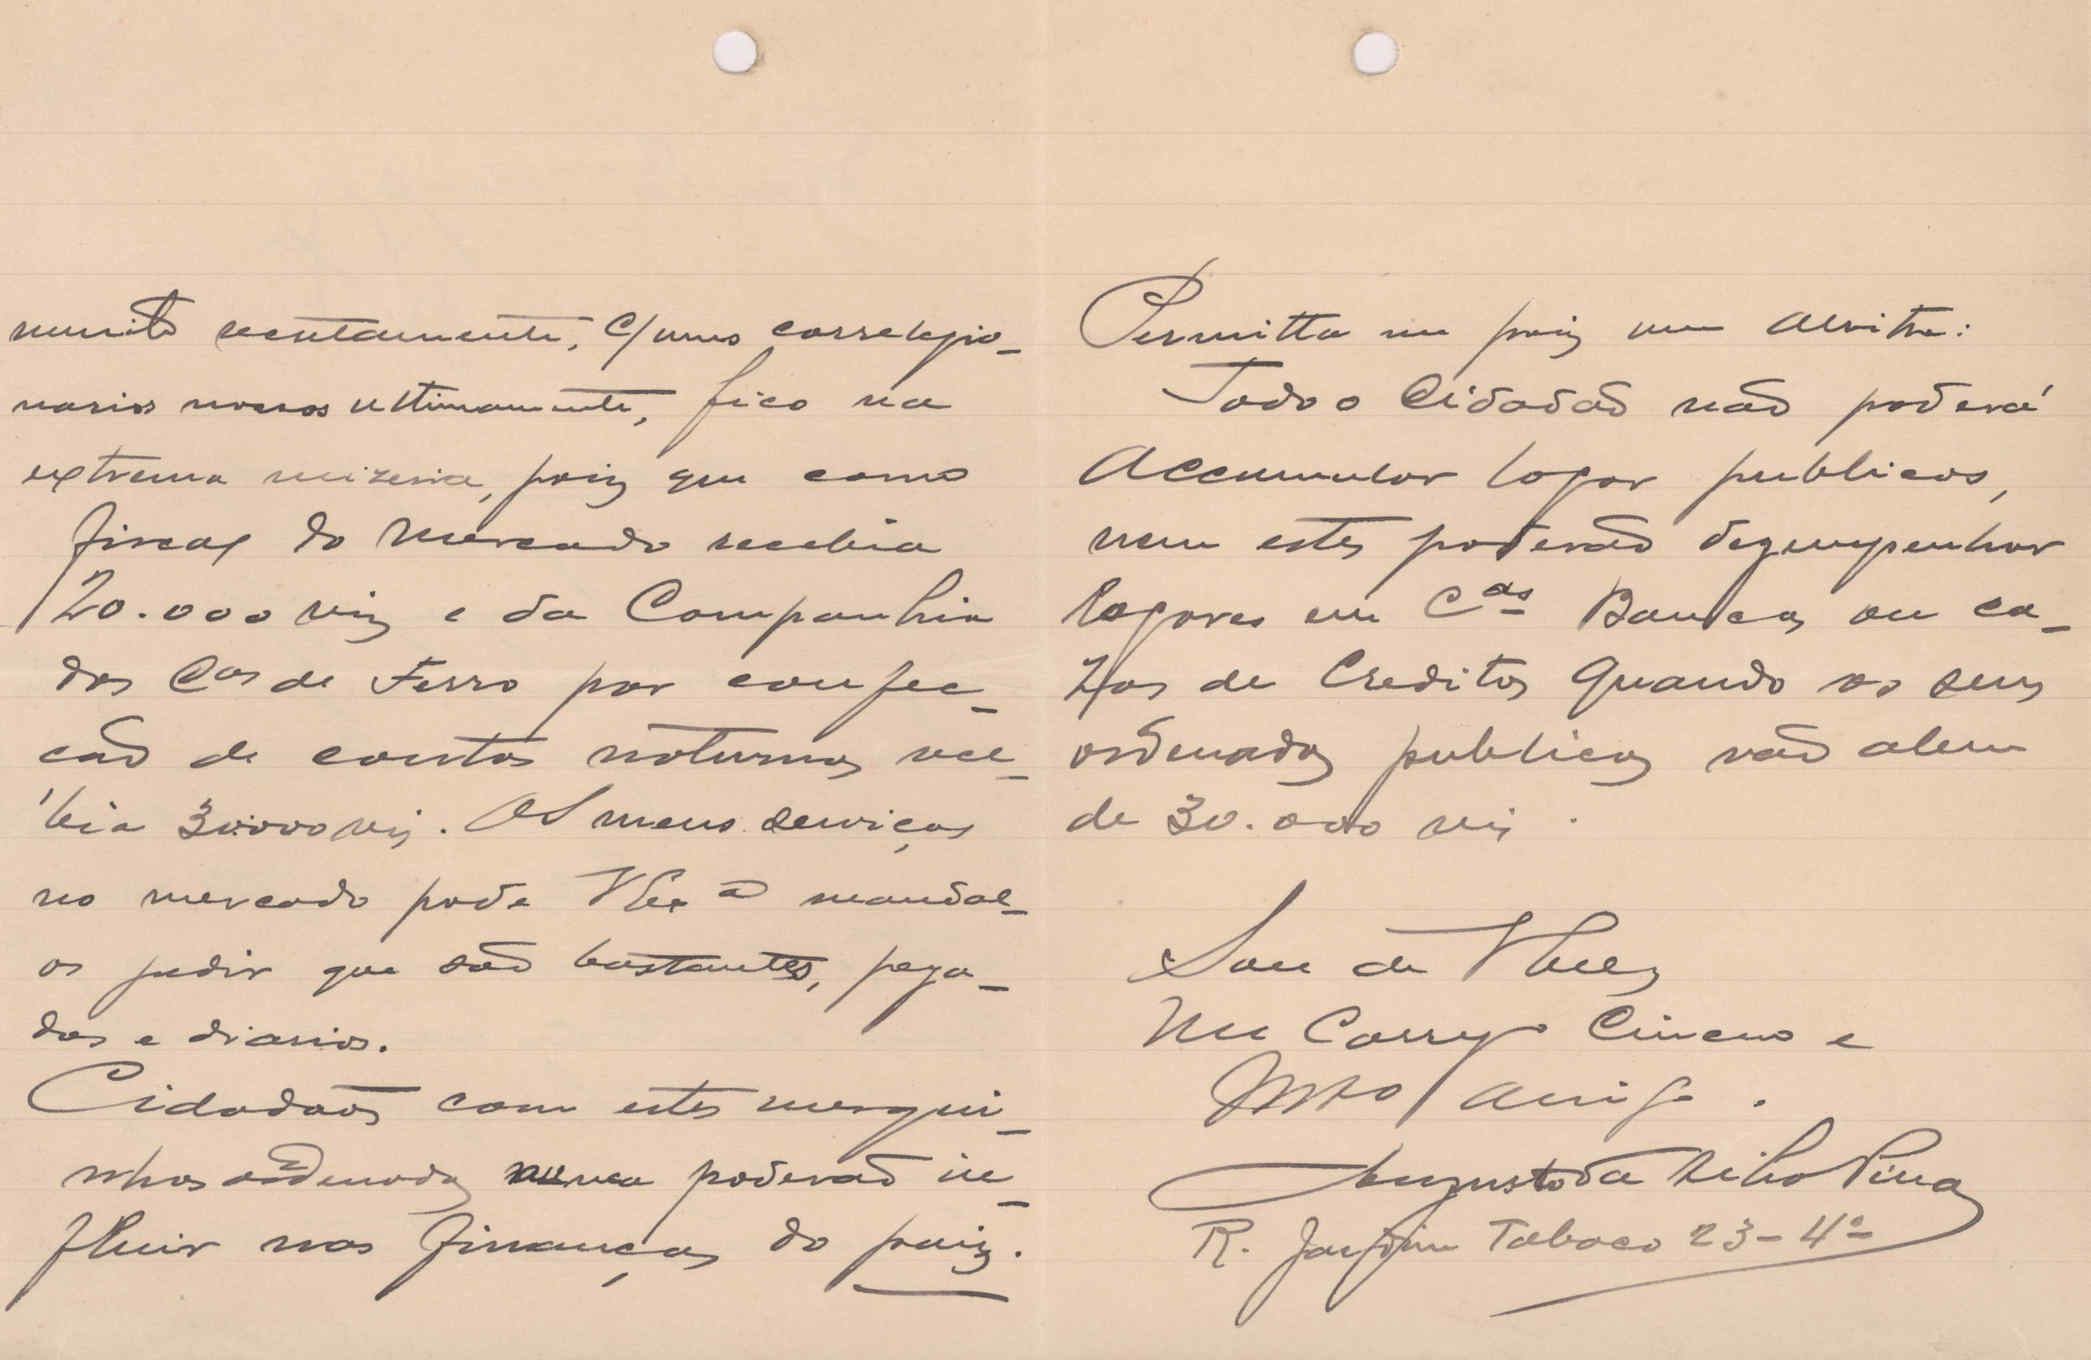 muito recentemente, c/ uns correlegio-
narios nossos ultimamente, fico na
extrema mizeria, poiz que como
fiscal do Mercado recebia
20.000 reiz e da Companhia
dos Cos de Ferro por confec-
caõ de contas noturnas rece-
bia 30.000 reiz. Os meus serviços
no mercado pode V Exª mandal-
os pedir que saõ bastantes, peza-
dos e diarios.
Cidadaõs com estes mesqui-
nhos ordenados nunca poderaõ in-
fluir nas finanças do paiz.
Permitta me poiz um alvitre:
Todo o Cidadaõ naõ poderá
accumular logar publicos,
nem estes poderaõ dezempenhar
logares em Cas Bancos ou ca-
zas de Creditos quando os seus
ordenados publicos vaõ alem
de 30.000 reis.
Sou de
Mto amigo.
Augusto da Silva Pina
R. Jardim Tabaco 23-4º